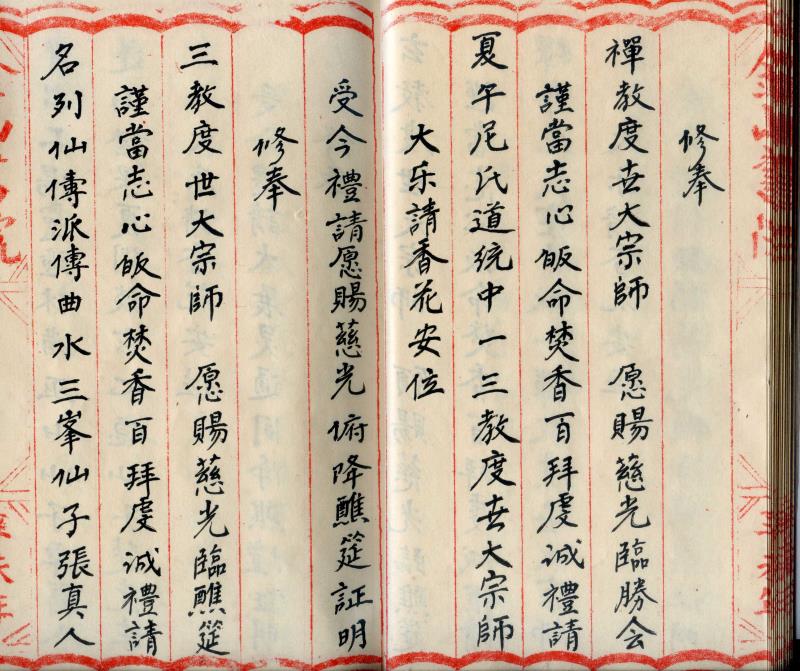 修奉
禪教度世大宗師 愿賜慈光臨勝会
謹當志心皈命焚香百拜虔诚禮請
夏午尼氏道统中一三教度世大宗師
大乐請香花安位
受今禮請愿賜慈光俯降醮筵証明
修奉
三教度世大宗師 愿賜慈光臨醮筵
謹當志心皈命焚香百拜虔诚禮請
名列仙傳派傳曲水三峯仙子張真人